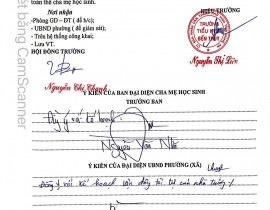 toàn thể cha mẹ học sinh.
Nơi nhận
- Phòng GD – ĐT ( để b/c);
- UBND phường ( để giám sát);
- Trên hệ thống công khai;
- Lưu VT.
HIỆU TRƯỞNG
TRƯỜNG
TIỂU HỌC
BẾN THỦY
Nguyễn Thị Liên
HỘI ĐỒNG TRƯỜNG
Nguyễn Chí Thanh
Ý KIẾN CỦA BAN ĐẠI DIỆN CHA MẸ HỌC SINH
TRƯỞNG BAN
Đồng ý với kế hoạch
Nguyễn Văn
Ý KIẾN CỦA ĐẠI DIỆN UBND PHƯỜNG (XÃ)
Đồng ý với kế hoạch vận động tài trợ của nhà trường
CamScanner